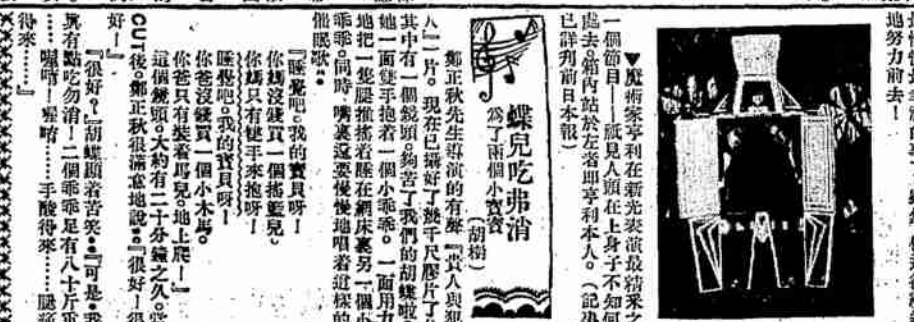 地努力前去！
▼魔術家亨利在新光表演最精采之
一個節目——祇見人頭在上身子不知何
處去。箱內站於左者即亨利本人。（記
已詳刋前日本報）
蝶兒吃弗消
爲了兩個小寶寶
（胡樹）
鄭正秋先生導演的有聲『貴人與犯
人』一片。現在已攝好了幾千尺膠片了
其中有一個鏡頭。夠苦了我們的胡蝶啦
她一面雙手抱着一個小乖乖。一面用力
地把一隻腿推搖着睡在網床裏另一個小
乖乖。同時嘴裏還要慢慢地唱着這樣的
催眠歌。
『睡覺吧。我的寶貝呀！
你媽沒錢買一個搖籃兒。
你媽只有雙手來抱呀！
睡覺吧。我的寶貝呀！
你爸沒錢買一個小木馬。
你爸只有裝着馬兒。地上爬！』
這個鏡頭。大約有二十分鐘之久。當
CUT後。鄭正秋很滿意地說。『很好！很
好！』
『很好？』胡蝶顯着苦笑。『可是。我
眞有點吃勿消！二個乖乖足有八十斤重
……喔唷！喔唷……手酸得來……腿
得來……』